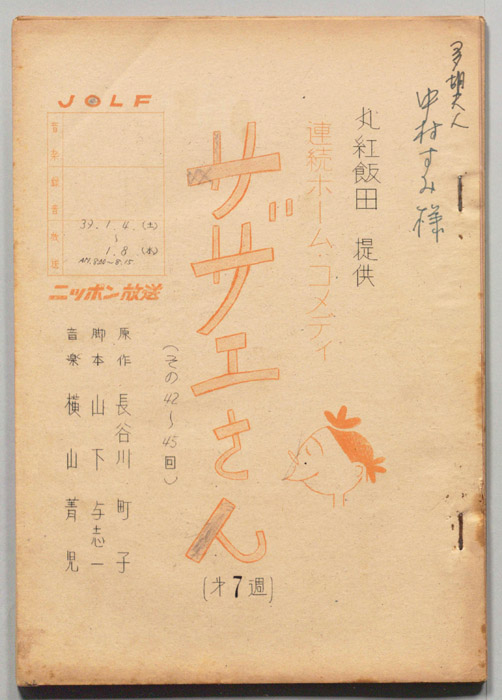 多胡夫人
中村すみ様
丸紅飯田　提供
連続ホーム・コメディ
サザエさん
(その42～45回)
(才7週)
JOLF
39.1.4.(土)
～
1.8(水)
ニッポン放送
原作　長谷川町子
脚本　山下与志一
音楽　横山菁児